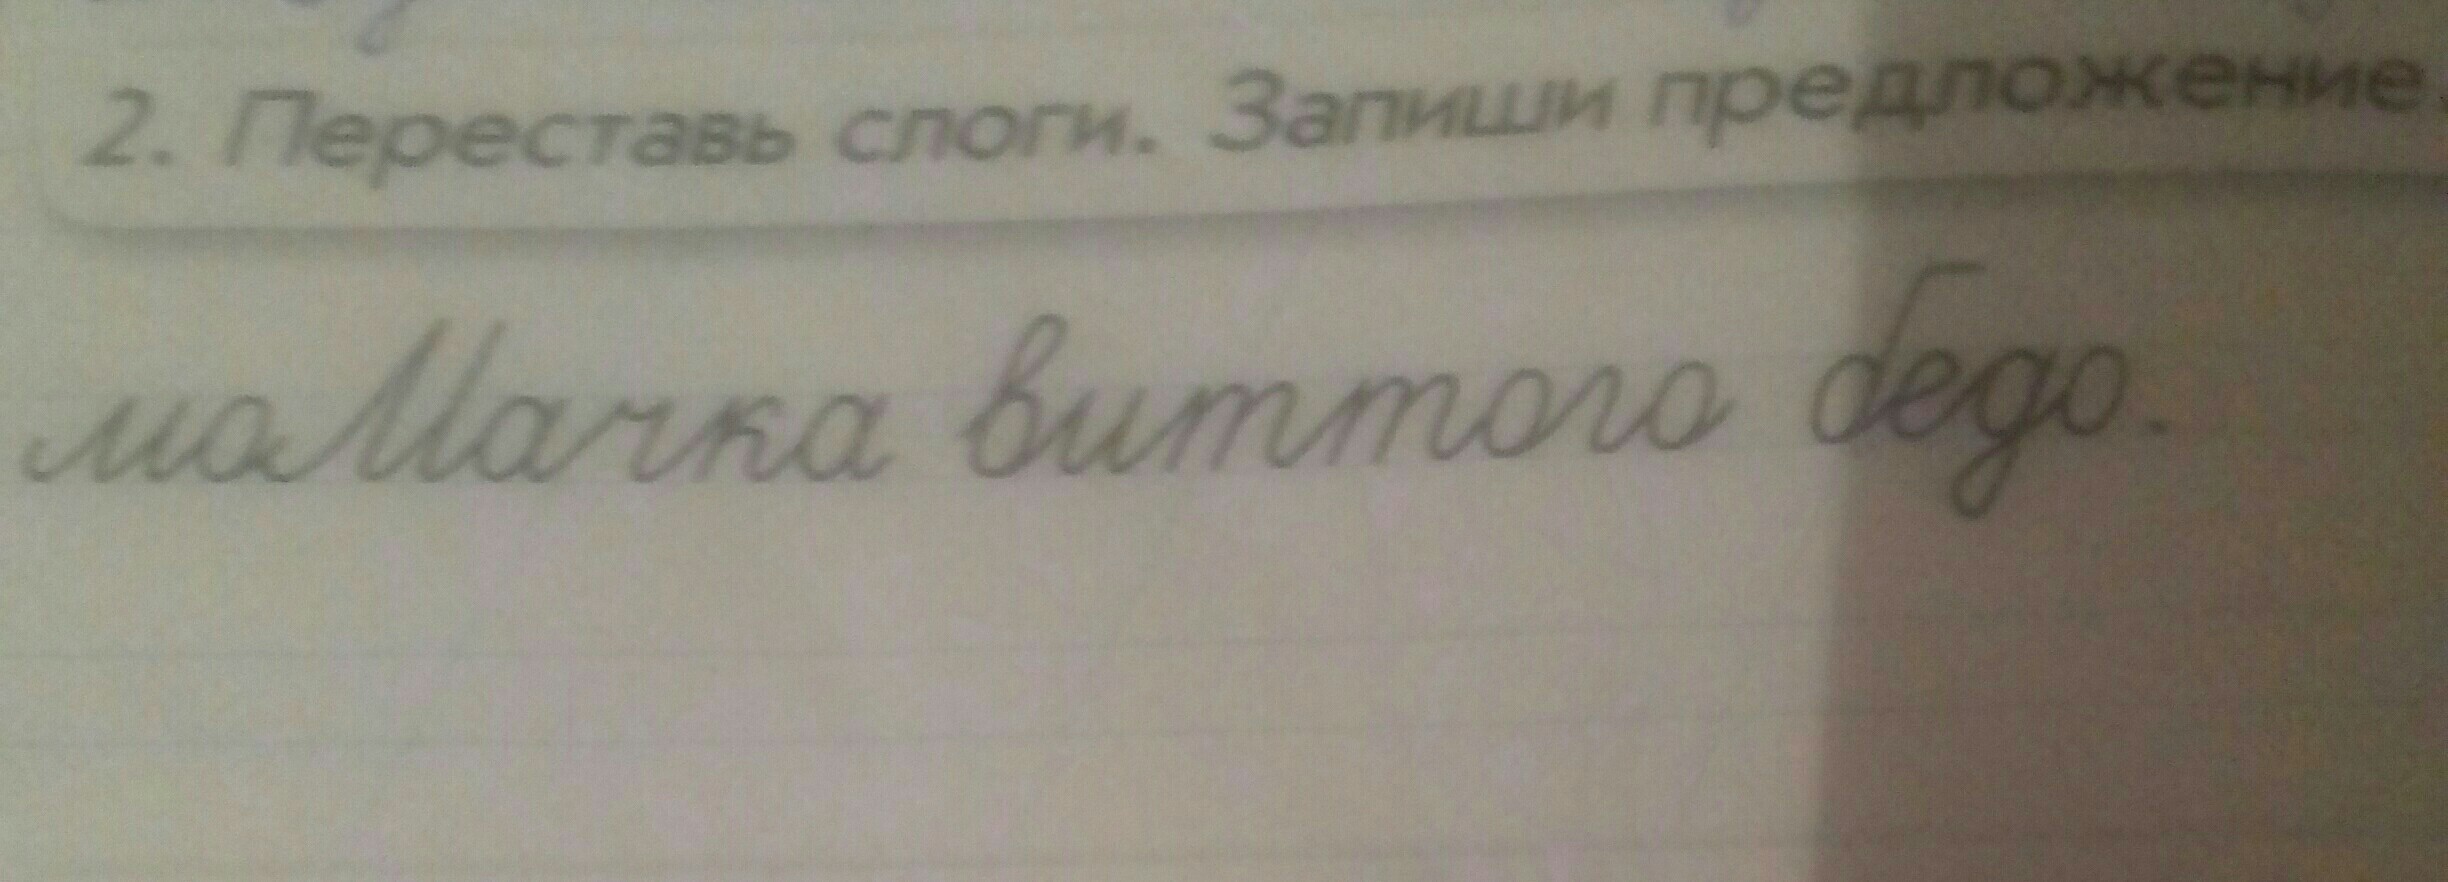 2. Переставь слоги. Запиши предложение.
маМачка виттого бедо.